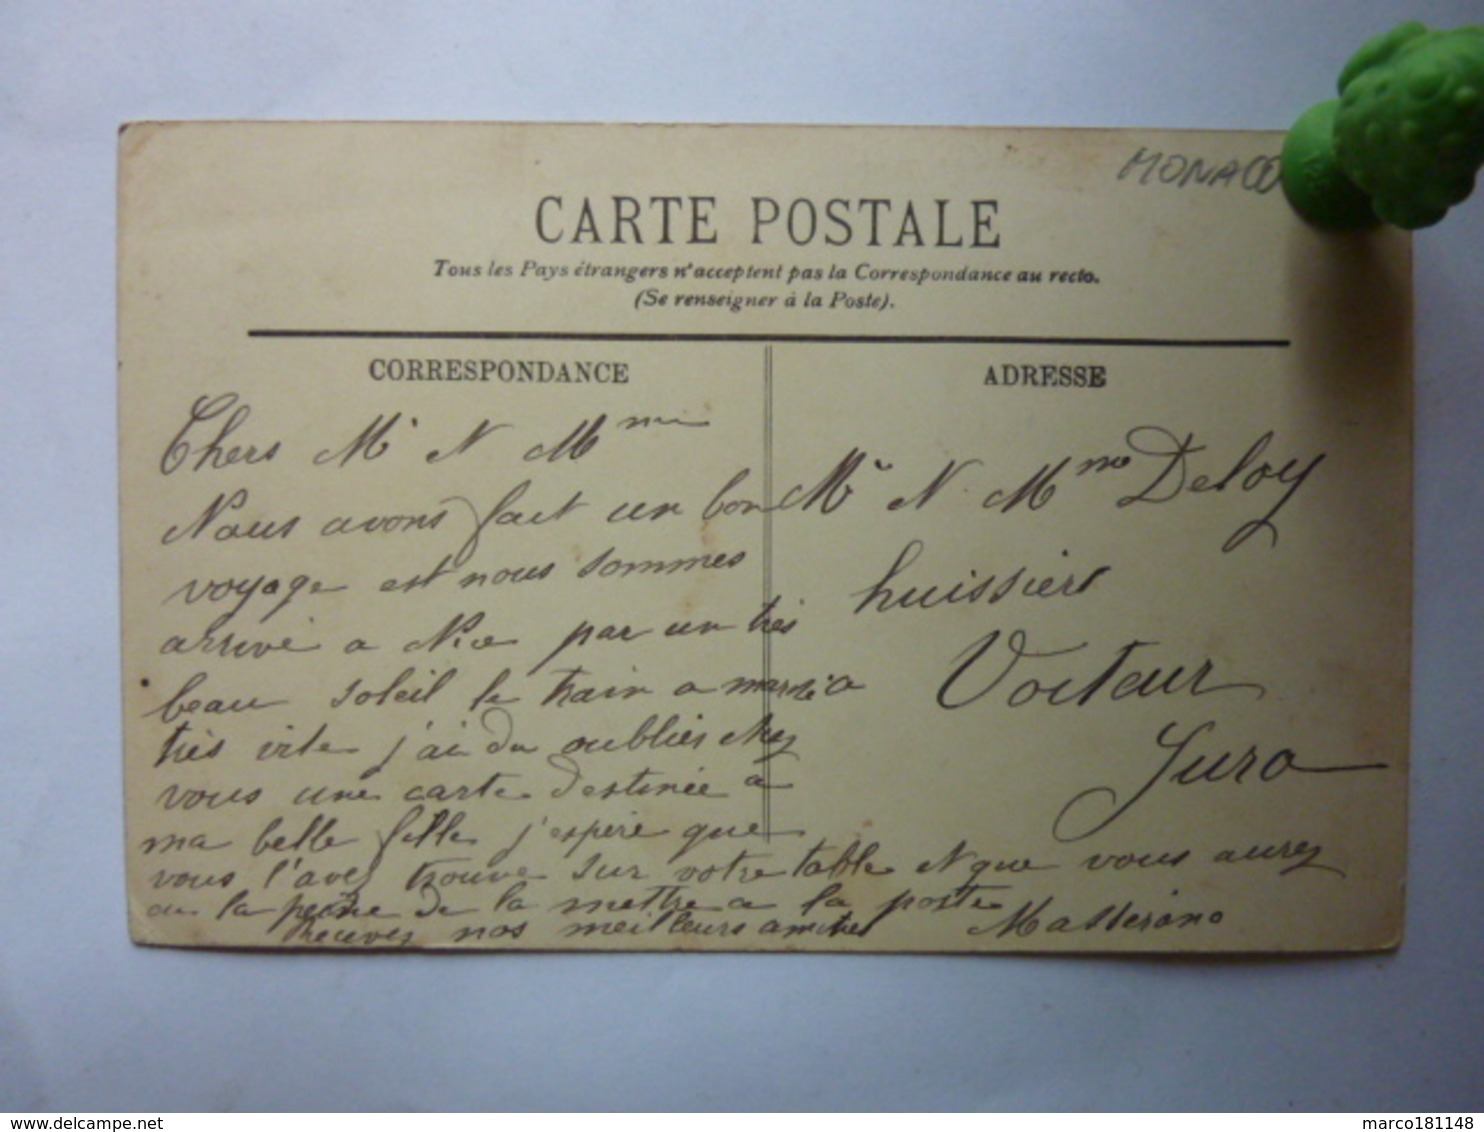 MONACO
CARTE POSTALE
Tous les Pays étrangers n'acceptent pas la Correspondance au recto.
(Se renseigner à la Poste).
CORRESPONDANCE
ADRESSE
Chers Mr N Mme
Nous avons fait un bon
voyage est nous sommes
arrivé a Nice par un très
beau soleil le train a marché
très vite j'ai du oublier chez
vous une carte destinée à
ma belle fille j'espère que
vous l'avez trouve sur votre table N que vous aurez
eu la peine de la mettre a la poste
recevez nos meilleurs amitiés Masserano
Mr N Mme Deloy
huissier
Voiteur
Jura
www.delcampe.net
marco181148